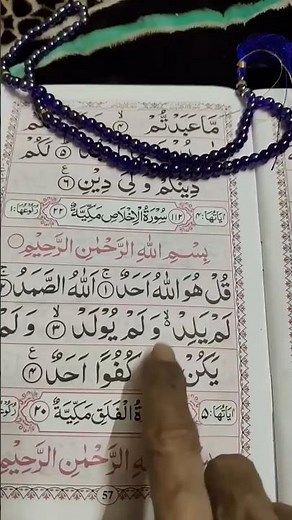 مَّا عَبَدْتُّمْ ۙ﴿۴﴾
﴿۵﴾ لَكُمْ
دِيْنُكُمْ وَلِيَ دِيْنِ ﴿۶﴾
اٰيَاتُهَا:۴ ﴿۱۱۲﴾ سُوْرَةُ الْاِخْلَاصِ مَكِّيَّةٌ ﴿۲۲﴾ رُكُوْعُهَا:۱
بِسْمِ اللّٰهِ الرَّحْمٰنِ الرَّحِيْمِ
قُلْ هُوَ اللّٰهُ اَحَدٌ ۚ﴿۱﴾ اَللّٰهُ الصَّمَدُ ۚ﴿۲﴾
لَمْ يَلِدْ ۙ۬ وَلَمْ يُوْلَدْ ۙ﴿۳﴾ وَلَمْ
يَكُنْ كُفُوًا اَحَدٌ ﴿۴﴾
اٰيَاتُهَا:۵ سُوْرَةُ الْفَلَقِ مَكِّيَّةٌ ﴿۲۰﴾
اللّٰهِ الرَّحْمٰنِ الرَّحِيْمِ
57